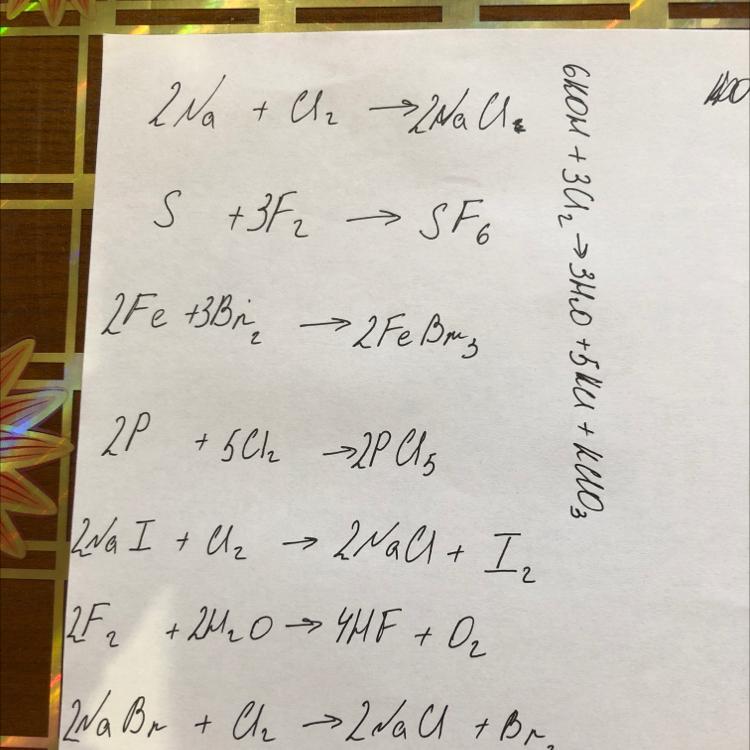 2Na + Cl₂ → 2NaCl
S + 3F₂ → SF₆
2Fe + 3Br₂ → 2FeBr₃
2P + 5Cl₂ → 2PCl₅
2NaI + Cl₂ → 2NaCl + I₂
2F₂ + 2H₂O → 4HF + O₂
2NaBr + Cl₂ → 2NaCl + Br₂
6KOH + 3Cl₂ → 3H₂O + 5KCl + KClO₃